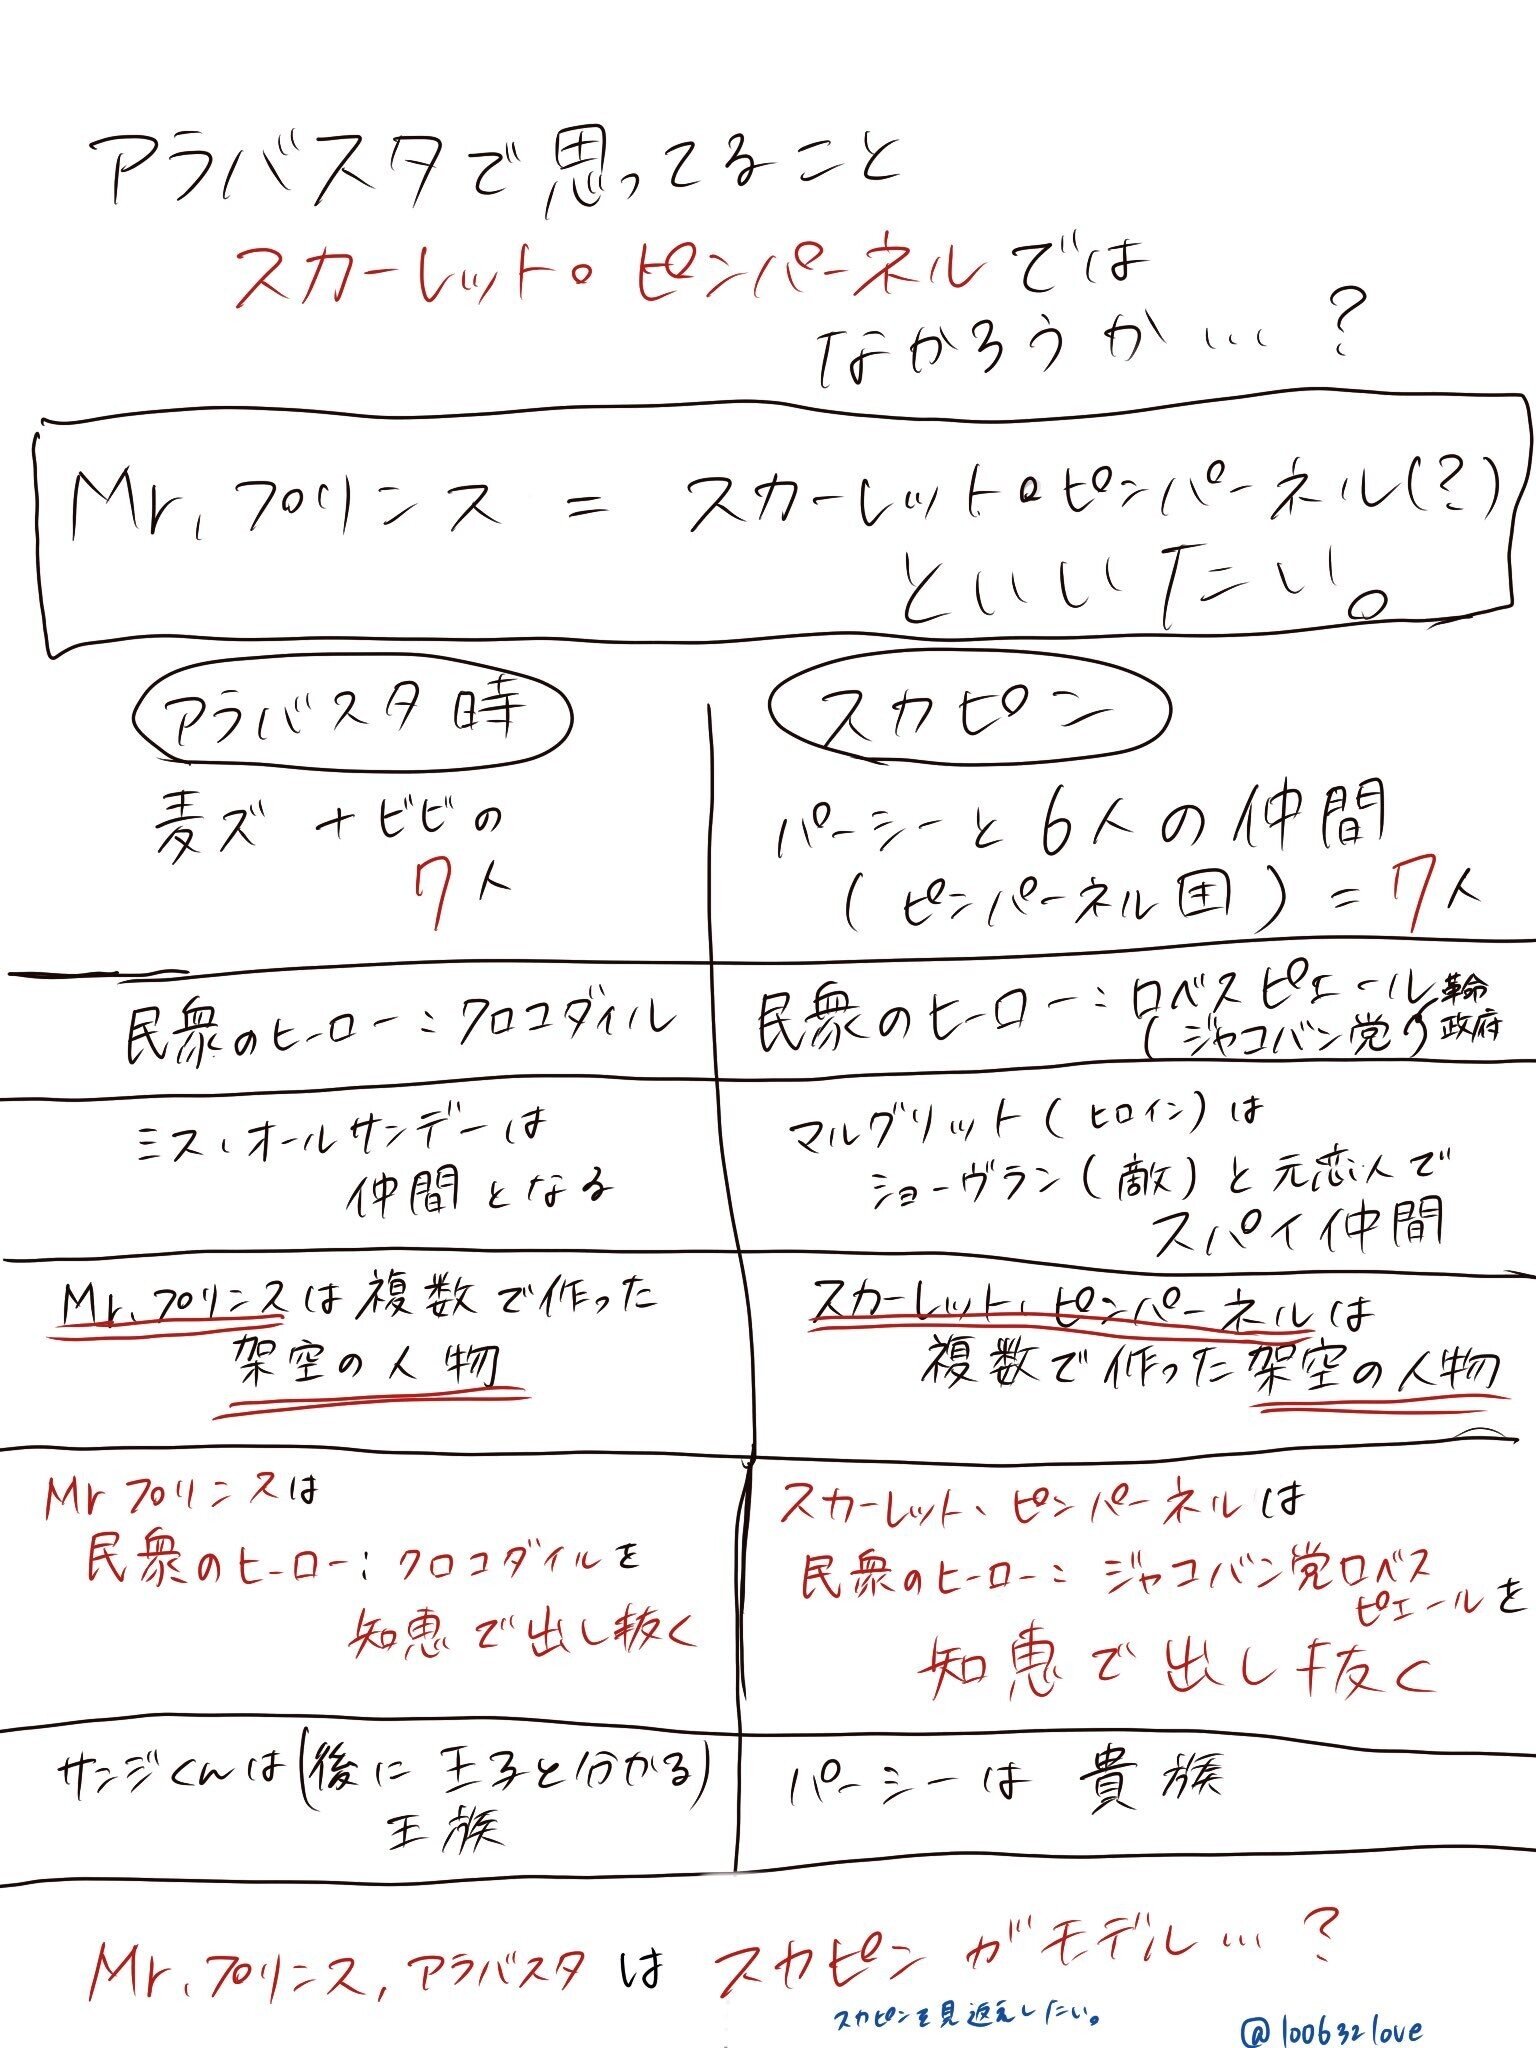 アラバスタで思ってること
スカーレット・ピンパーネルでは
なかろうか…?
Mr.プリンス = スカーレット・ピンパーネル(?)
といいたい。
アラバスタ時
麦ズ + ビビの
7人
民衆のヒーロー:クロコダイル
ミス・オールサンデーは
仲間となる
Mr.プリンスは複数で作った
架空の人物
Mrプリンスは
民衆のヒーロー:クロコダイルを
知恵で出し抜く
サンジくんは(後に王子と分かる)
王族
スカピン
パーシーと6人の仲間
(ピンパーネル団) = 7人
民衆のヒーロー:ロベスピエール
(ジャコバン党)
革命
政府
マルグリット(ヒロイン)は
ショーヴラン(敵)と元恋人で
スパイ仲間
スカーレット・ピンパーネルは
複数で作った架空の人物
スカーレット、ピンパーネルは
民衆のヒーロー:ジャコバン党ロベス
ピエールを
知恵で出し抜く
パーシーは貴族
Mr.プリンス,アラバスタはスカピンがモデル…?
スカピンを見返えしたい。
@100632love